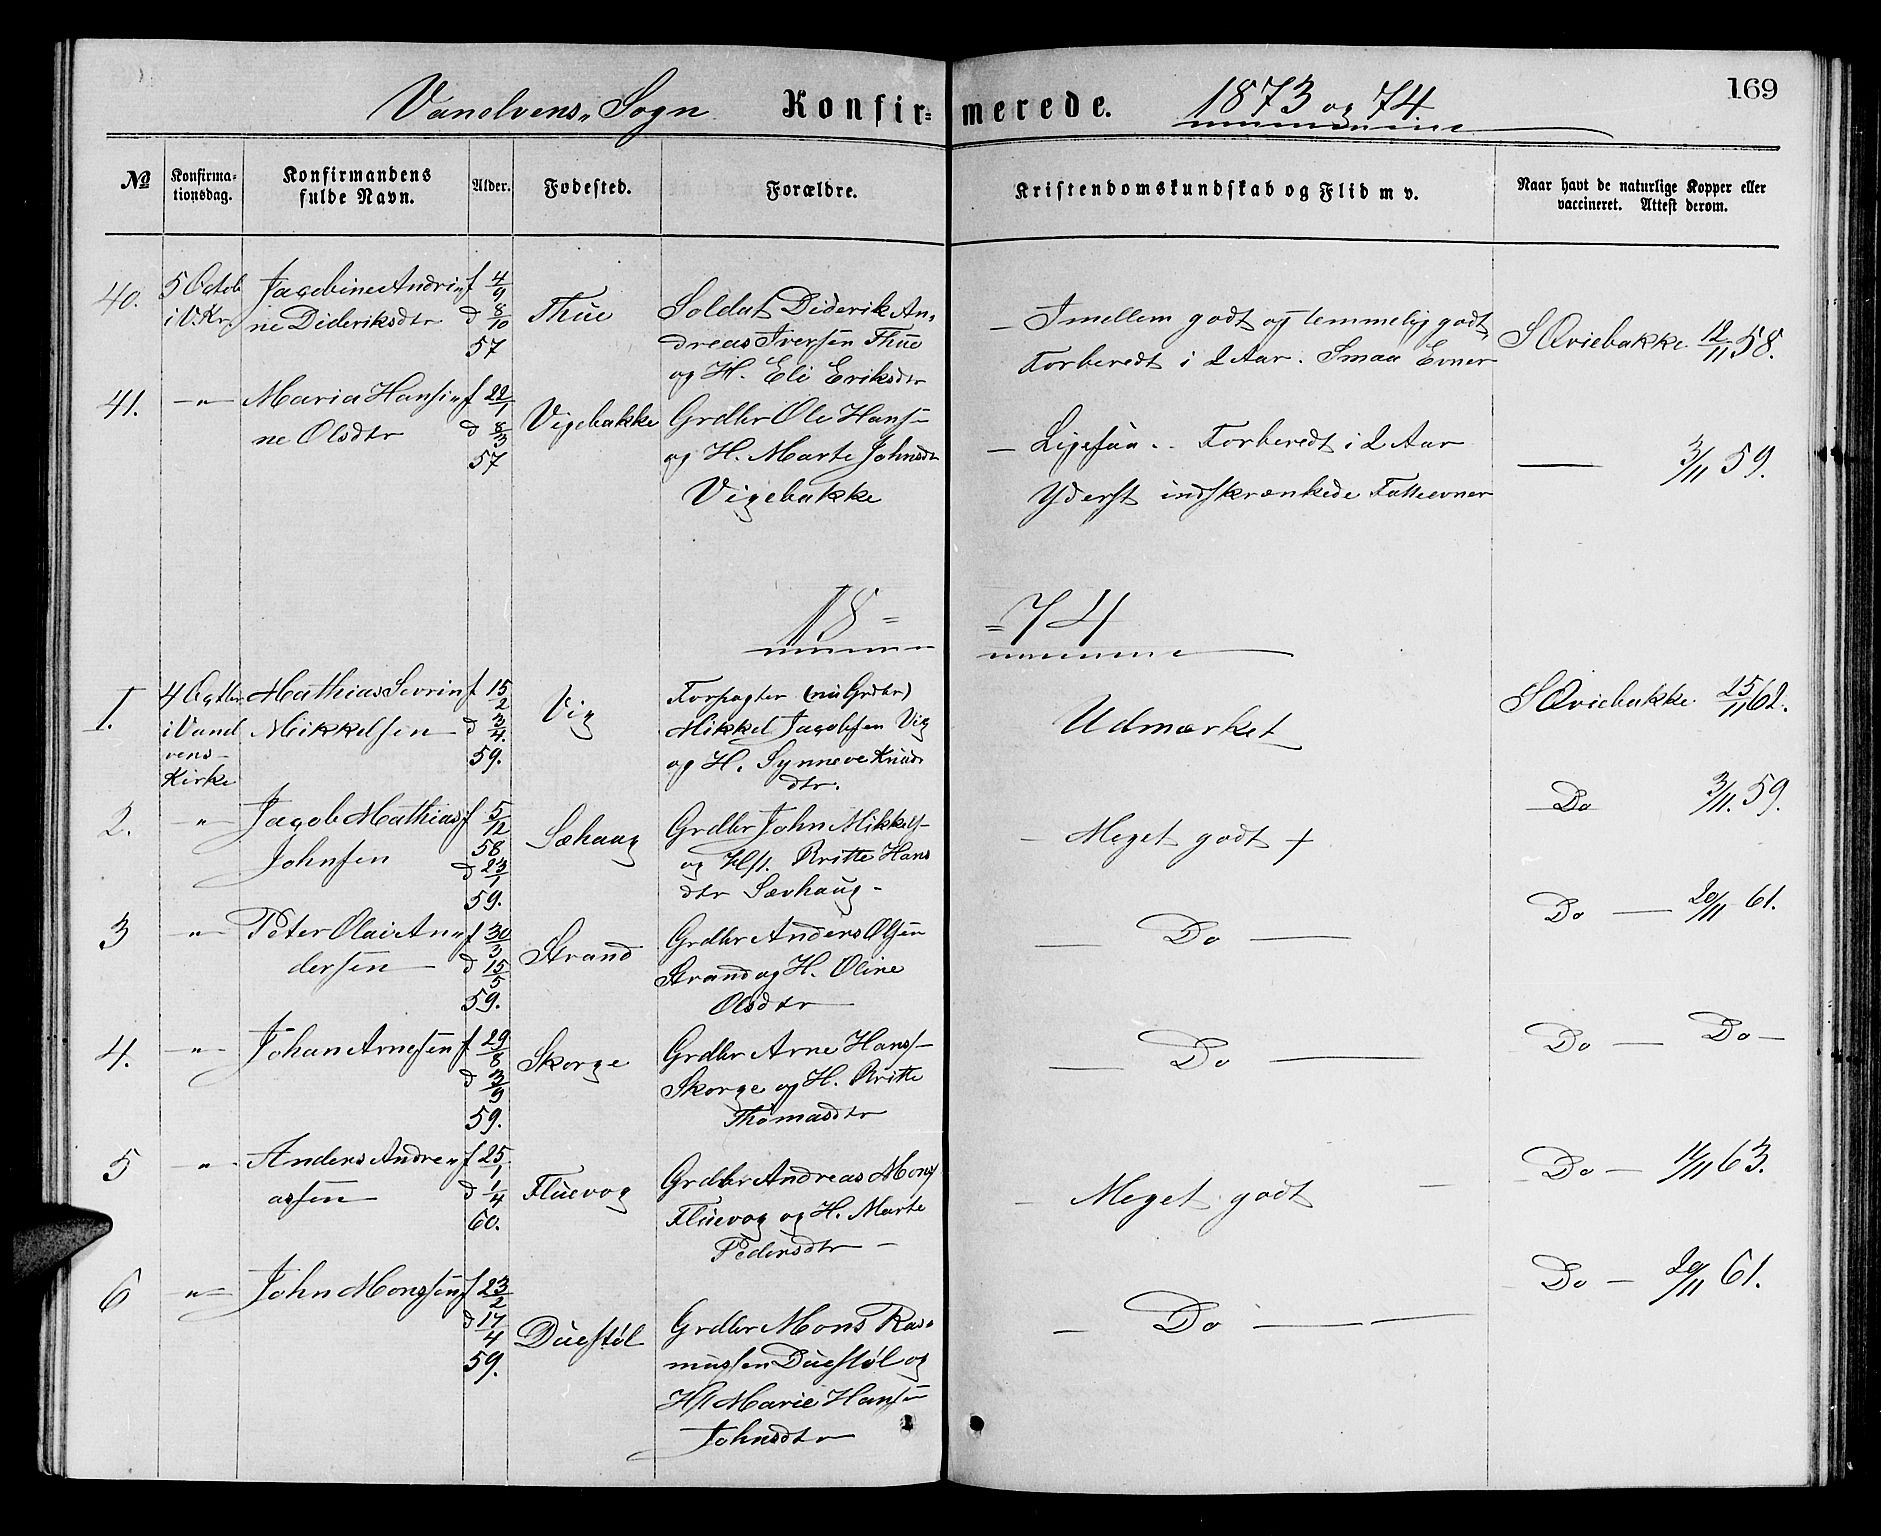 Vanelvens Sogn Konfir= merede. 1873 og 74 169
No Konfirma-
tionsdag. Konfirmandens
fulde Navn. Alder. Fødested. Forældre. Kristendomskundskab og Flid m v. Naar havt de naturlige Kopper eller
vaccineret. Attest derom.
40. 5 Octob Jacobine Andri= f 4/9
i V. Kr. ne Dideriksdtr d 8/10 Thue Soldat Diderik An=
57 dreas Iversen Thue
og H. Eli Eriksdtr
— Imellem godt og temmelig godt
Forberedt i 2 Aar. Smaa Evner
S Qviebakke 12/11 58.
41. — " — Maria Hansi= f 22/1
ne Olsdtr d 8/3 Vigebakke Grdbr Ole Hans-
57 og H. Marte Johnsdtr
Vigebakke
— Ligesaa.. Forberedt i 2 Aar
Yderst indskrænkede Fatteevner
— 3/11 59.
18= =74
1. 4 Octbr Mathias Sevrin f 15/2
i Vanel Mikkelsen d 3/4.
vens- 59.
Kirke
Vig Forpagter (nu Grdbr)
Mikkel Jacobsen Vig
og H. Synneve Knuds
dtr.
Udmærket
S Qviebakke 25/11 62.
2. — " — Jacob Mathias f 5/12
Johnsen 58
d 23/1
59.
Sæhaug Grdbr John Mikkels-
og Hst. Britte Hans
dtr Sævhaug-
— Meget godt +
— Do 3/11. 59.
3 — " — Peter Olai An= f 30/3
dersen — d 15/5
59.
Strand Grdbr Anders Olsen
Strand og H. Oline
Olsdtr —
— Do —
Do — 20/11 61.
4. — " — Johan Arnesen f 29/8
d 3/9
59.
Skorge Grdbr Arne Hans-
Skorge og H. Britte
Thomasdtr
— Do —
Do — Do —
5 — " — Anders Andre= f 25/1
assen d 1/4
60.
Fluevog Grdbr Andreas Mons
Fluevog og H. Marte
Pedersdtr —
— Meget godt —
Do — 11/11 63.
6 — " — John Monssen f 23/2
d 17/4
59.
Duestøl Grdbr Mons Ras=
mussen Duestøl og
H/ Marie Hansen
Johnsdtr
— Do —
Do — 20/11 61.